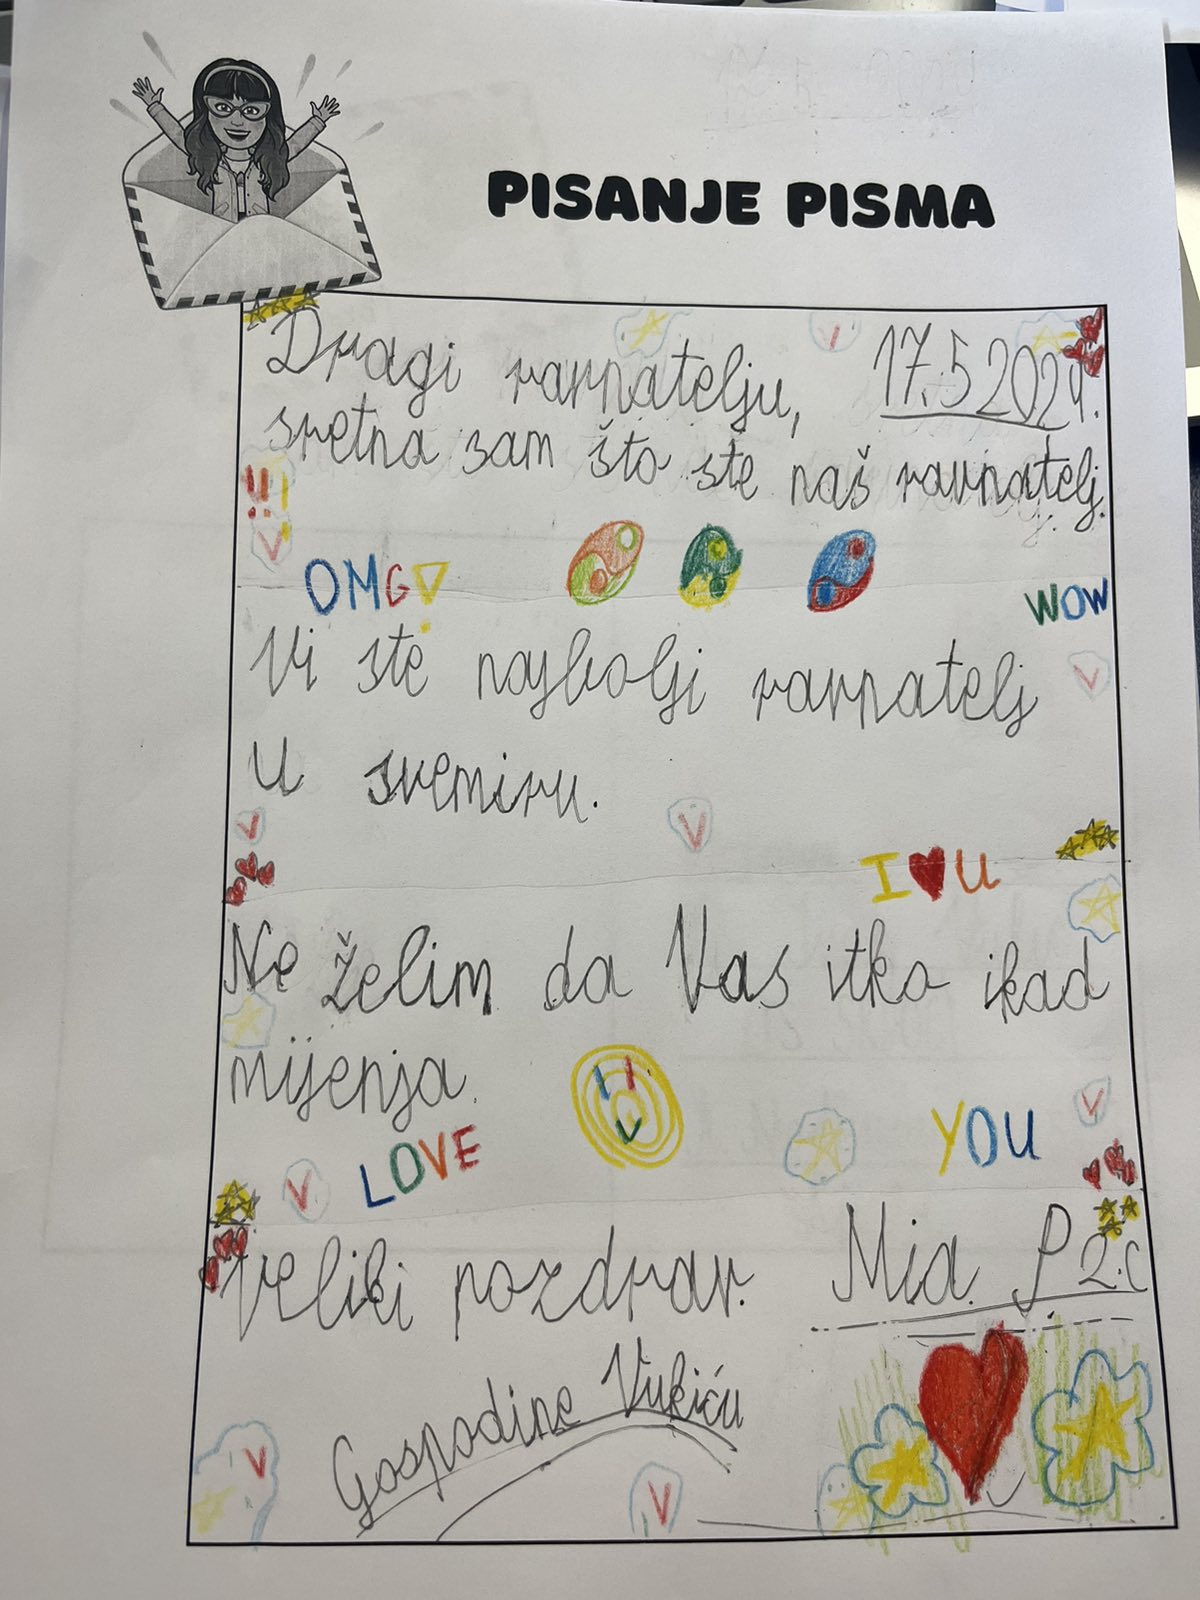 PISANJE PISMA
Dragi ravnatelju, 17.5 2024.
sretna sam što ste naš ravnatelj.
OMG! WOW
Vi ste najbolji ravnatelj
u svemiru.
I ♥ U
Ne želim da Vas itko ikad
mijenja.
LOVE YOU
Veliki pozdrav. Mia P 2.c
Gospodine Vukiću